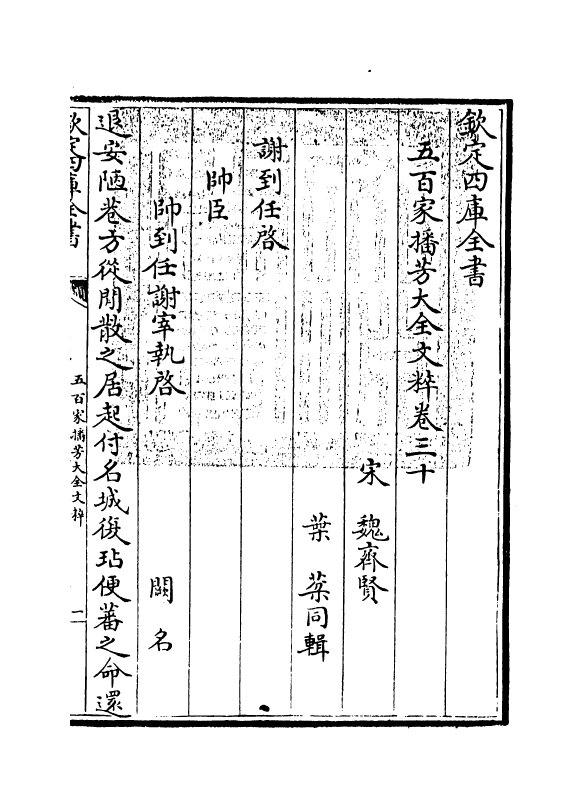 欽定四庫全書
五百家播芳大全文粹卷三十
宋 魏齊賢
葉棻同輯
謝到任啓
帥臣
帥到任謝宰執啓 闕名
退安陋巷方從閒散之居起付名城復玷便蕃之命還
欽定四庫全書
五百家播芳大全文粹
二